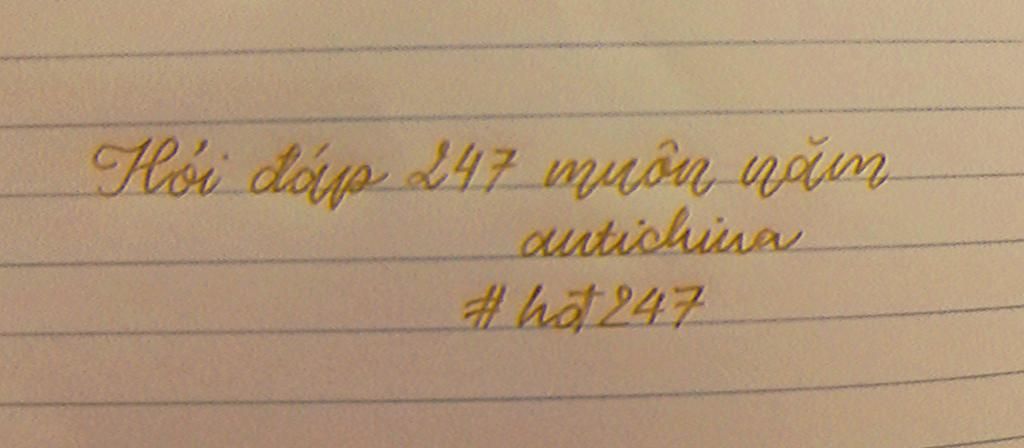 Hỏi đáp 247 muôn năm
antichina
#hđ247